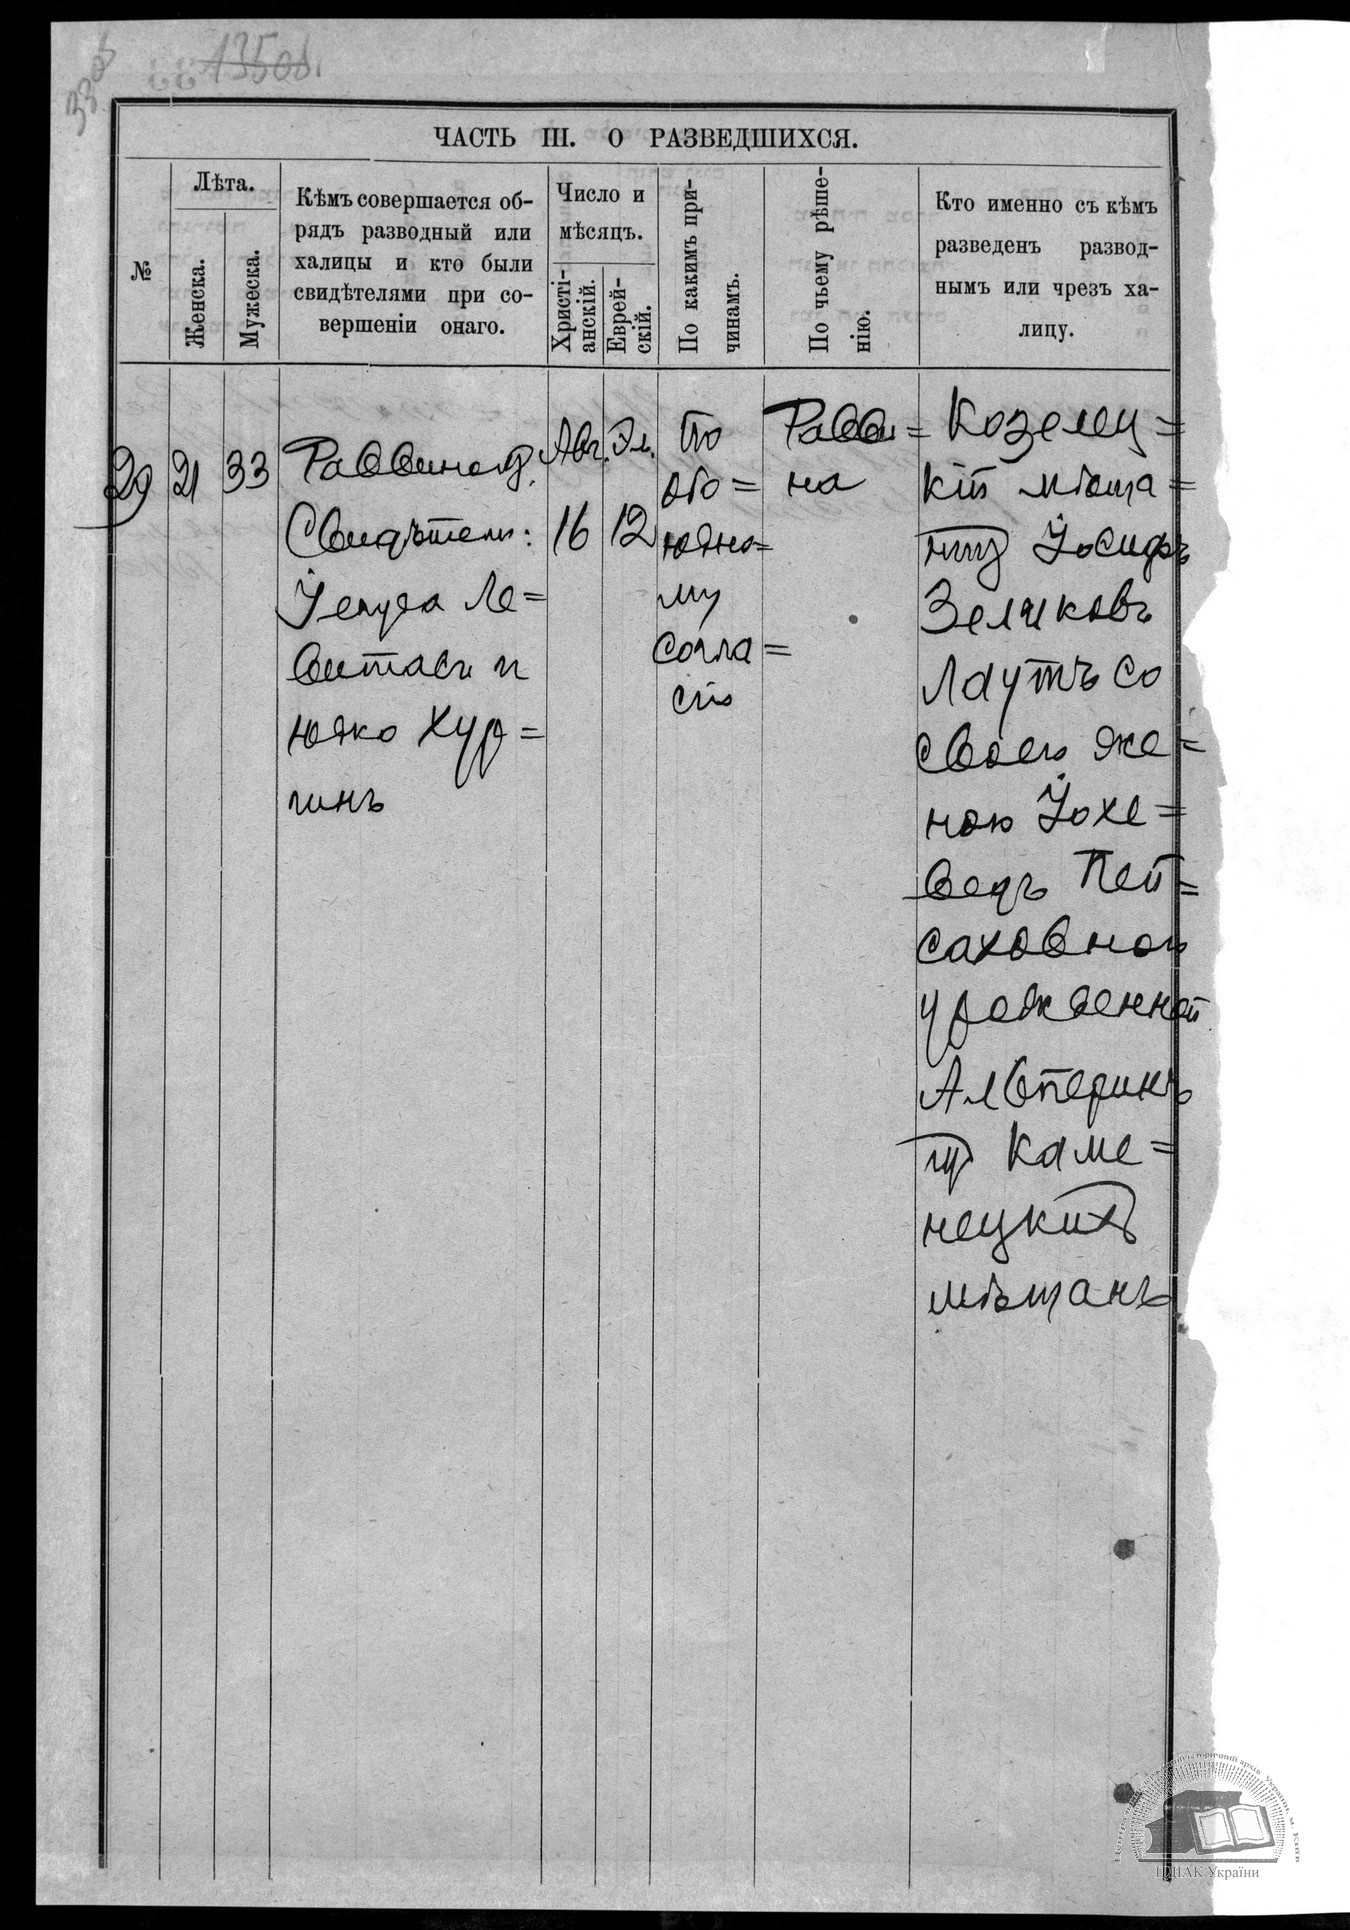 33 об
135 об.
ЧАСТЬ III. О РАЗВЕДШИХСЯ.
№
Лѣта.
Женска.
Мужеска.
Кѣмъ совершается об-
рядъ разводный или
халицы и кто были
свидѣтелями при со-
вершеніи онаго.
Число и
мѣсяцъ.
Христі-
анскій.
Еврей-
скій.
По какимъ при-
чинамъ.
По чьему рѣше-
нію.
Кто именно съ кѣмъ
разведенъ развод-
нымъ или чрезъ ха-
лицу.
29
21
33
Раввиномъ.
Свидѣтели:
Іегуда Ле=
витасъ и
Хур=
гинъ
Авг.
16
Эл.
12
По
обо=
юдно=
му
согла=
сію
Равви=
на
Коземц=
кій мѣща=
нинъ Іосифъ
Зеликовъ
Лаутъ со
своею же=
ною Іохе=
ведъ Пей=
саховной
урожденной
Альперинъ
изъ Каме=
нецкихъ
мѣщанъ
ЦДІАК України